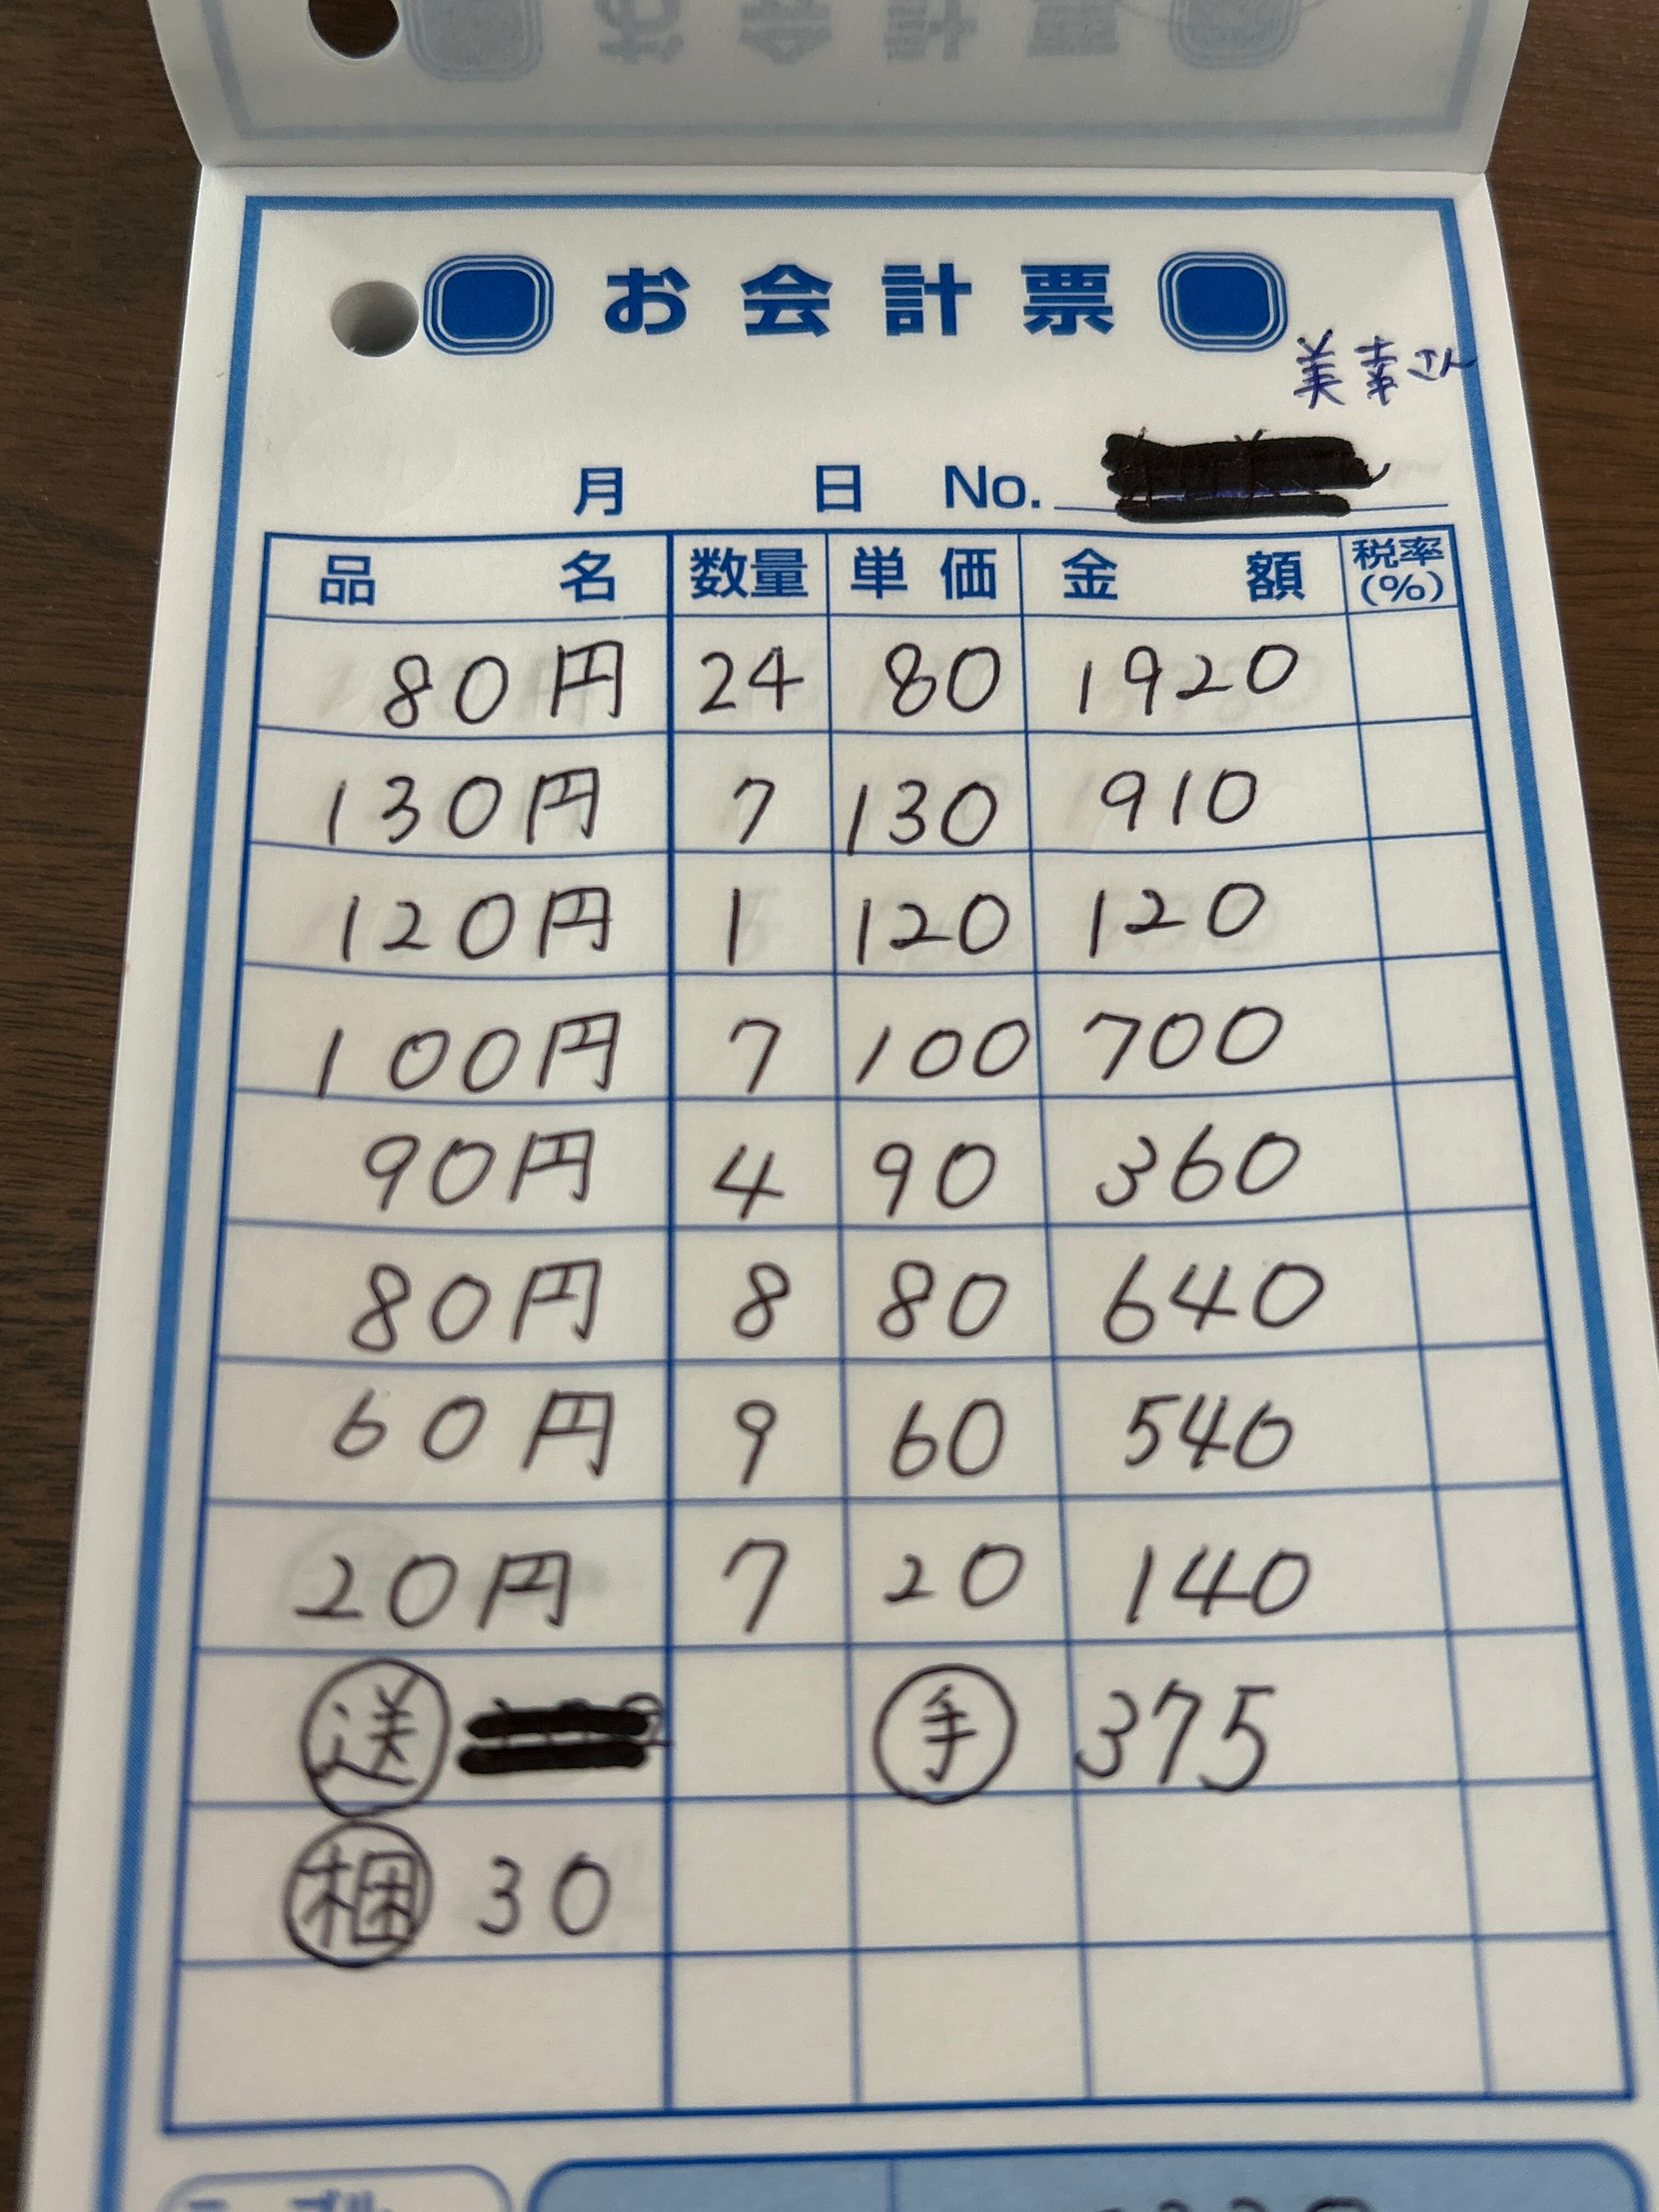 お会計票
美幸さん
月 日 No.
品名 数量 単価 金額 税率(%)
80円 24 80 1920
130円 7 130 910
120円 1 120 120
100円 7 100 700
90円 4 90 360
80円 8 80 640
60円 9 60 540
20円 7 20 140
送 手 375
梱 30